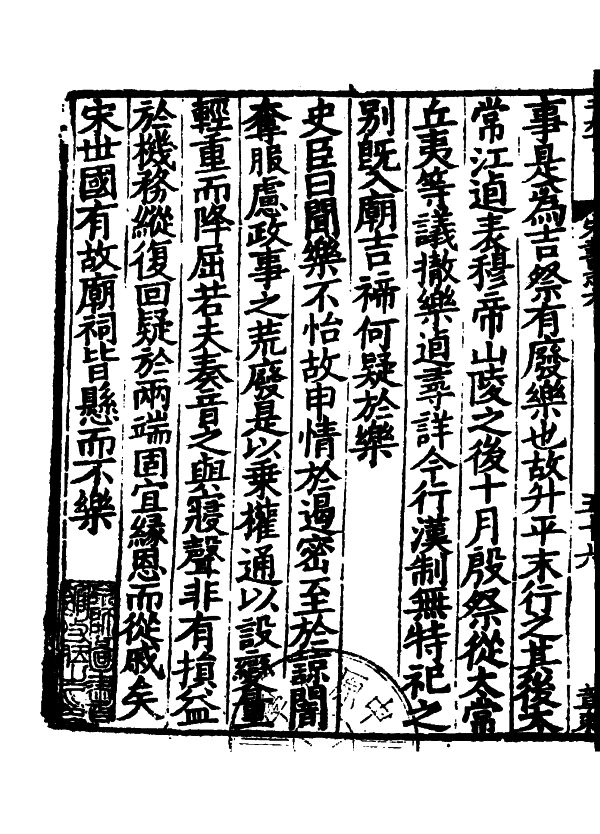 事是為吉祭有廢樂也故升平末行之其後太
常江逌表穆帝山陵之後十月殷祭從太常
丘夷等議撤樂逌尋詳今行漢制無特祀之
別旣入廟吉禘何疑於樂
史臣曰聞樂不怡故申情於遏密至於諒闇
奪服慮政事之荒廢是以乗權通以設變量
輕重而降屈若夫奏音之與寢聲非有損益
於機務縱復回疑於兩端固宜緣恩而從戚矣
宋世國有故廟祠皆懸而不樂